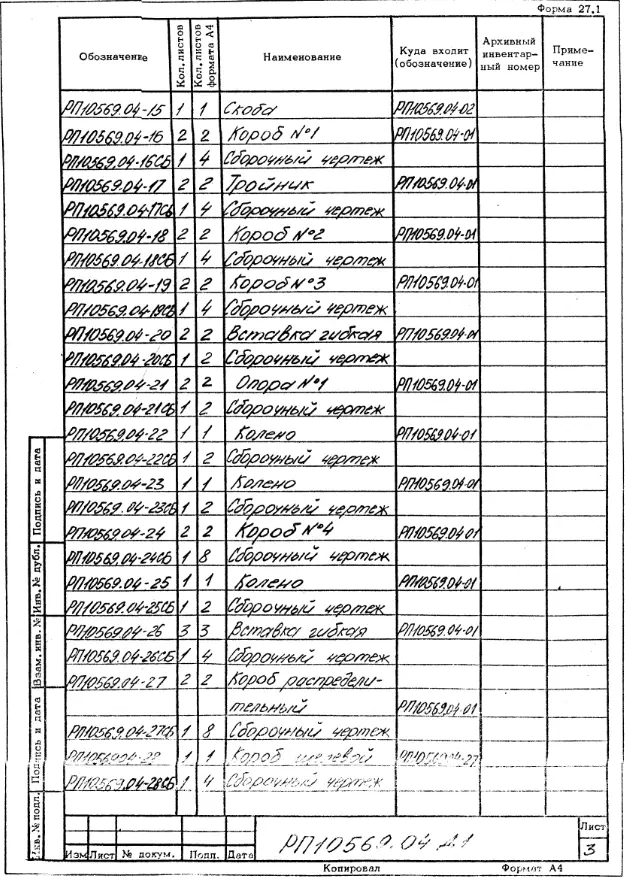 Форма 27.1
Обозначение Кол. листов Кол. листов формата А4 Наименование Куда входит (обозначение) Архивный инвентарный номер Примечание
РП10569.04-15 1 1 Скоба РП10569.04-02
РП10569.04-16 2 2 Короб №1 РП10569.04-01
РП10569.04-16СБ 1 4 Сборочный чертеж
РП10569.04-17 2 2 Тройник РП10569.04-01
РП10569.04-17СБ 1 4 Сборочный чертеж
РП10569.04-18 2 2 Короб №2 РП10569.04-01
РП10569.04-18СБ 1 4 Сборочный чертеж
РП10569.04-19 2 2 Короб №3 РП10569.04-01
РП10569.04-19СБ 1 4 Сборочный чертеж
РП10569.04-20 2 2 Вставка гибкая РП10569.04-01
РП10569.04-20СБ 1 2 Сборочный чертеж
РП10569.04-21 2 2 Опора №1 РП10569.04-01
РП10569.04-21СБ 1 2 Сборочный чертеж
РП10569.04-22 1 1 Колено РП10569.04-01
РП10569.04-22СБ 1 2 Сборочный чертеж
РП10569.04-23 1 1 Колено РП10569.04-01
РП10569.04-23СБ 1 2 Сборочный чертеж
РП10569.04-24 2 2 Короб №4 РП10569.04-01
РП10569.04-24СБ 1 8 Сборочный чертеж
РП10569.04-25 1 1 Колено РП10569.04-01
РП10569.04-25СБ 1 2 Сборочный чертеж
РП10569.04-26 3 3 Вставка гибкая РП10569.04-01
РП10569.04-26СБ 1 4 Сборочный чертеж
РП10569.04-27 2 2 Короб распредели-
тельный РП10569.04-01
РП10569.04-27СБ 1 8 Сборочный чертеж
РП10569.04-28 1 1 Короб щелевой РП10569.04-27
РП10569.04-28СБ 1 4 Сборочный чертеж
Инв. № подл. Подпись и дата Взам. инв. № Инв. № дубл. Подпись и дата
Изм Лист № докум. Подп. Дата
РП10569.04 Д1
Лист
3
Копировал Формат А4